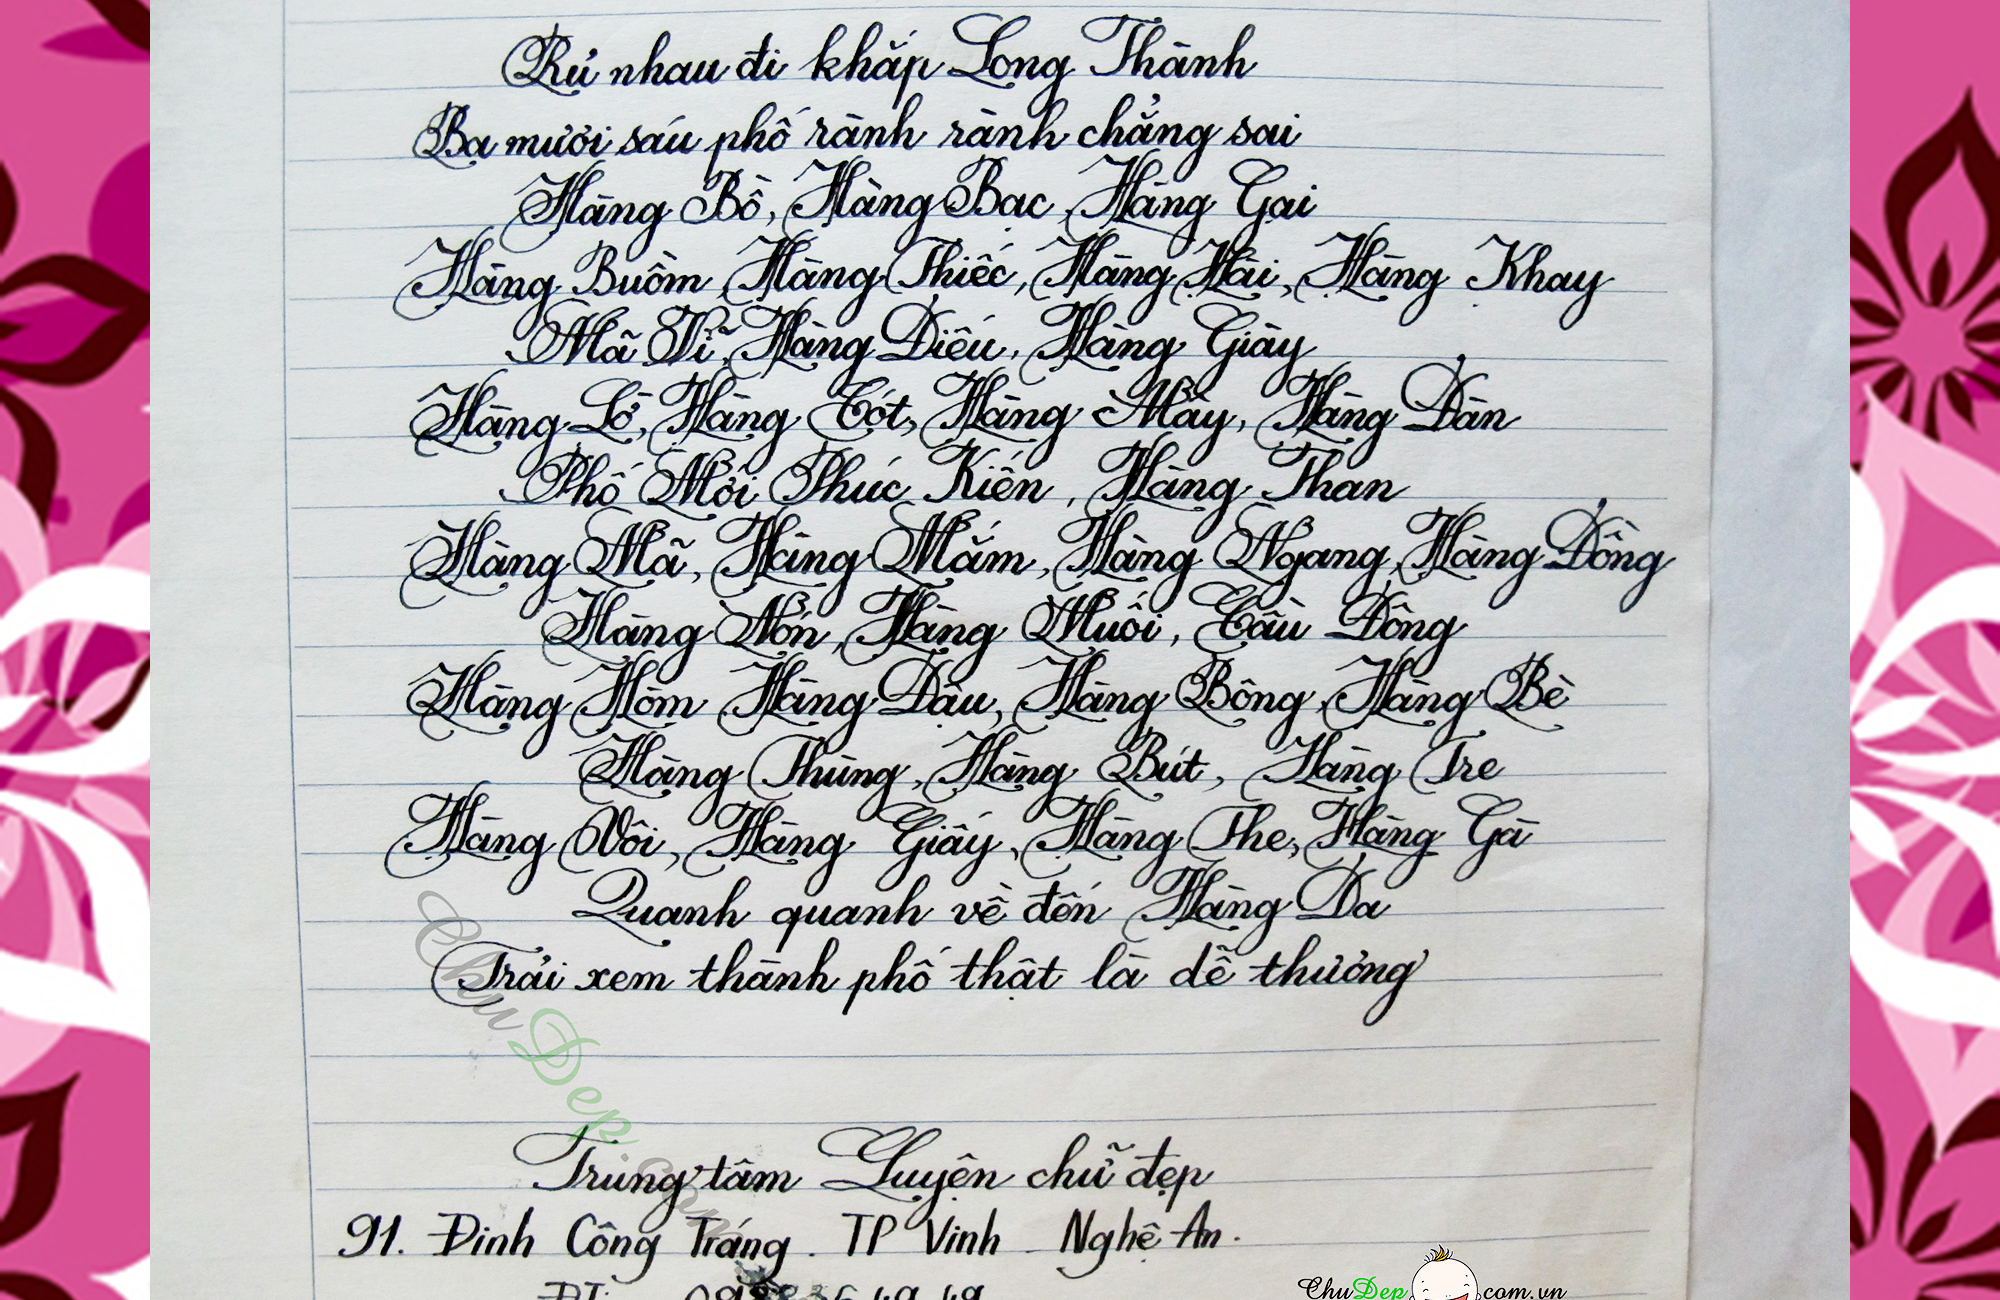 Rủ nhau đi khắp Long Thành
Ba mươi sáu phố rành rành chẳng sai
Hàng Bồ, Hàng Bạc, Hàng Gai
Hàng Buồm, Hàng Thiếc, Hàng Hài, Hàng Khay
Mã Vĩ, Hàng Điếu, Hàng Giày
Hàng Lờ, Hàng Cót, Hàng Mây, Hàng Đàn
Phố Mới Phúc Kiến, Hàng Than
Hàng Mã, Hàng Mắm, Hàng Ngang, Hàng Đồng
Hàng Nón, Hàng Muối, Cầu Đông
Hàng Hòm Hàng Đậu, Hàng Bông, Hàng Bè
Hàng Thùng, Hàng Bút, Hàng Tre
Hàng Vôi, Hàng Giấy, Hàng The, Hàng Gà
Quanh quanh về đến Hàng Da
Trải xem thành phố thật là dễ thương
ChuDep.com
Trung tâm Luyện chữ đẹp
91. Đinh Công Tráng. TP Vinh - Nghệ An.
ChuDep.com.vn